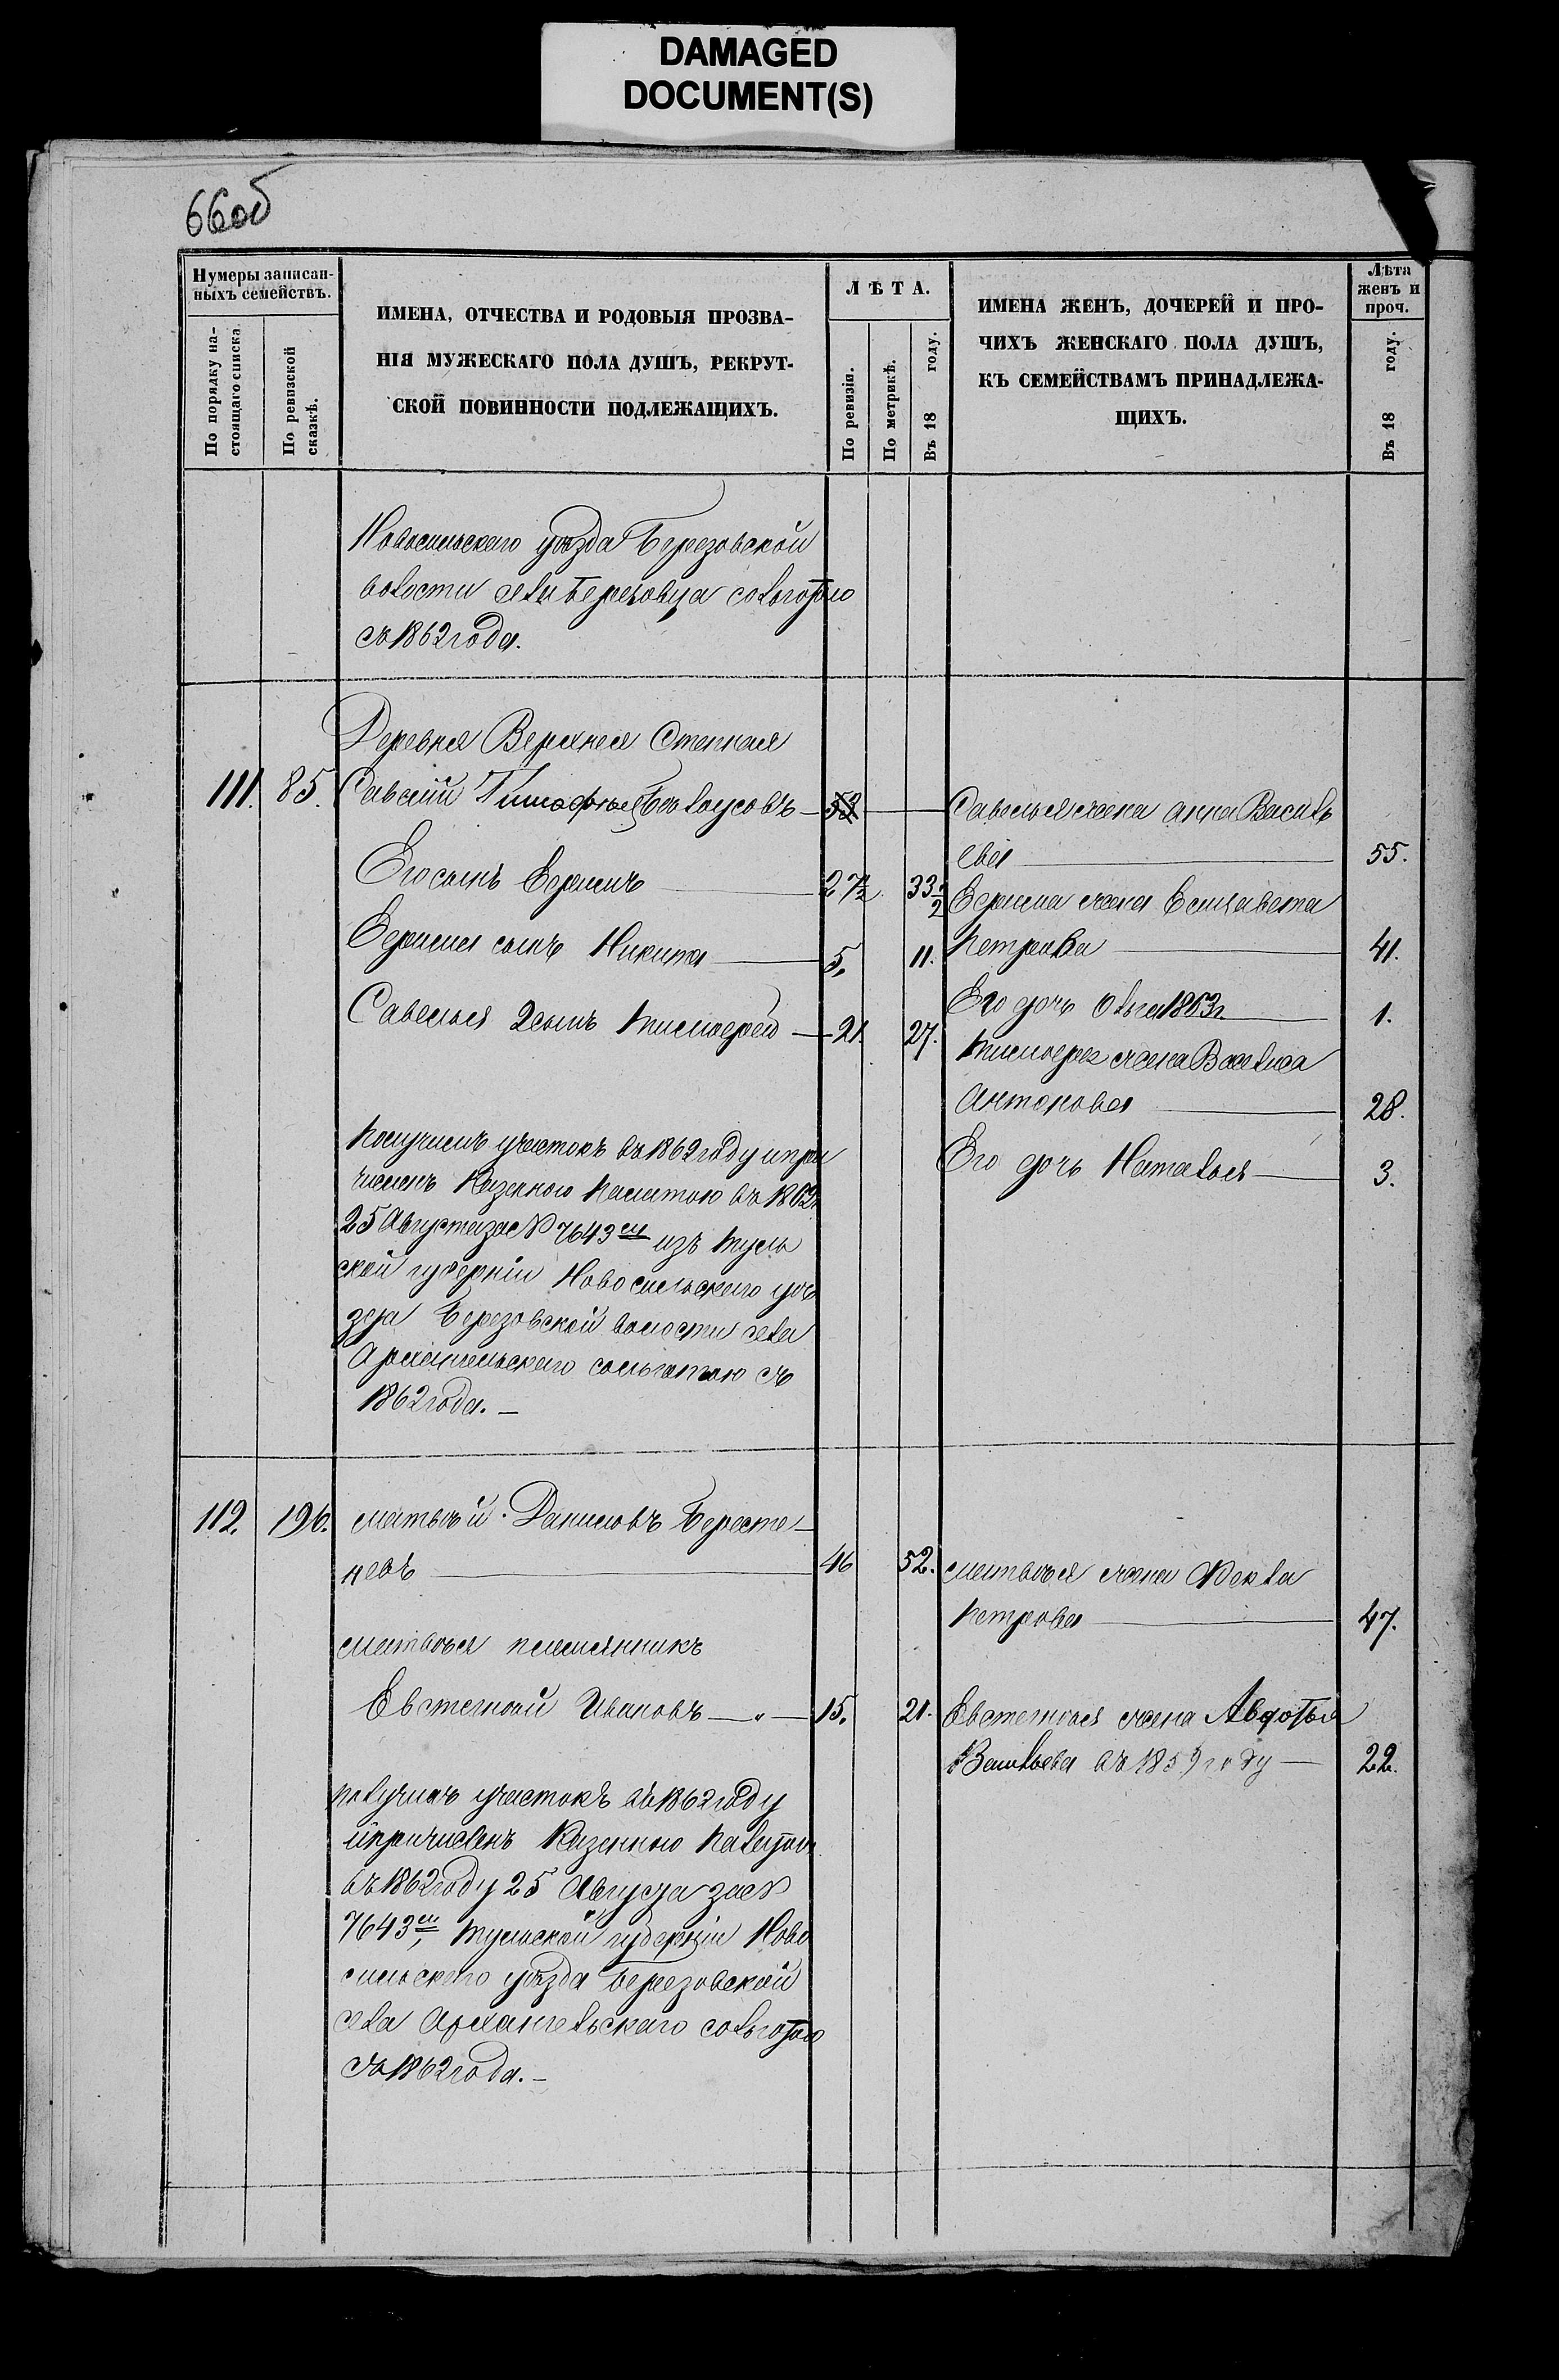 DAMAGED
DOCUMENT(S)
66об
Нумеры записан-
ныхъ семействъ.
По порядку на-
стоящаго списка
По ревизской
сказкѣ.
ИМЕНА, ОТЧЕСТВА И РОДОВЫЯ ПРОЗВА-
НІЯ МУЖЕСКАГО ПОЛА ДУШЪ, РЕКРУТ-
СКОЙ ПОВИННОСТИ ПОДЛЕЖАЩИХЪ.
ЛѢТА.
По ревизіи.
По метрикѣ.
Въ 18 году.
ИМЕНА ЖЕНЪ, ДОЧЕРЕЙ И ПРО-
ЧИХЪ ЖЕНСКАГО ПОЛА ДУШЪ,
КЪ СЕМЕЙСТВАМЪ ПРИНАДЛЕЖА-
ЩИХЪ.
Лѣта
женъ и
проч.
Въ 18 году.
Новосильскаго уѣзда Березовской
волости села Березовца сольготою
съ 1862 года.
Деревня Верхнея Степная
111. 85. Савелій Тимофѣевъ Бѣлоусовъ 53
Савелья жена Анна Василь
ева 55.
Его сынъ Ефимъ 27½ 33½
Ефима жена Елизавета
Петрова 41.
Ефима сынъ Никита 5. 11.
Его дочь Ольга 1863г. 1.
Савелья 2 сынъ Тимофей 21. 27.
Тимофея жена Василиса
Антонова 28.
Его дочь Наталья 3.
Получилъ участокъ въ 1862 году и при
численъ Казенною Палатою въ 1862г
25 Августа за № 7643ем изъ Туль
ской губерніи Новосильскаго уѣ
зда Березовской волости села
Архангельскаго сольготою съ
1862 года. —
112. 196. Матвѣй Даниловъ Бересте-
невъ 46 52.
Матвѣя жена Фекла
Петрова 47.
Матвѣя племянникъ
Евстегней Ивановъ 15. 21.
Евстегнея жена Авдотья
Васильева въ 1859 году 22.
Получилъ участокъ въ 1862 году
и причисленъ Казенною Палатою
въ 1862 году 25 Августа за №
7643ем, Тульской губерніи Ново
сильскаго уѣзда Березовской
села Архангельскаго сольготою
съ 1862 года. —